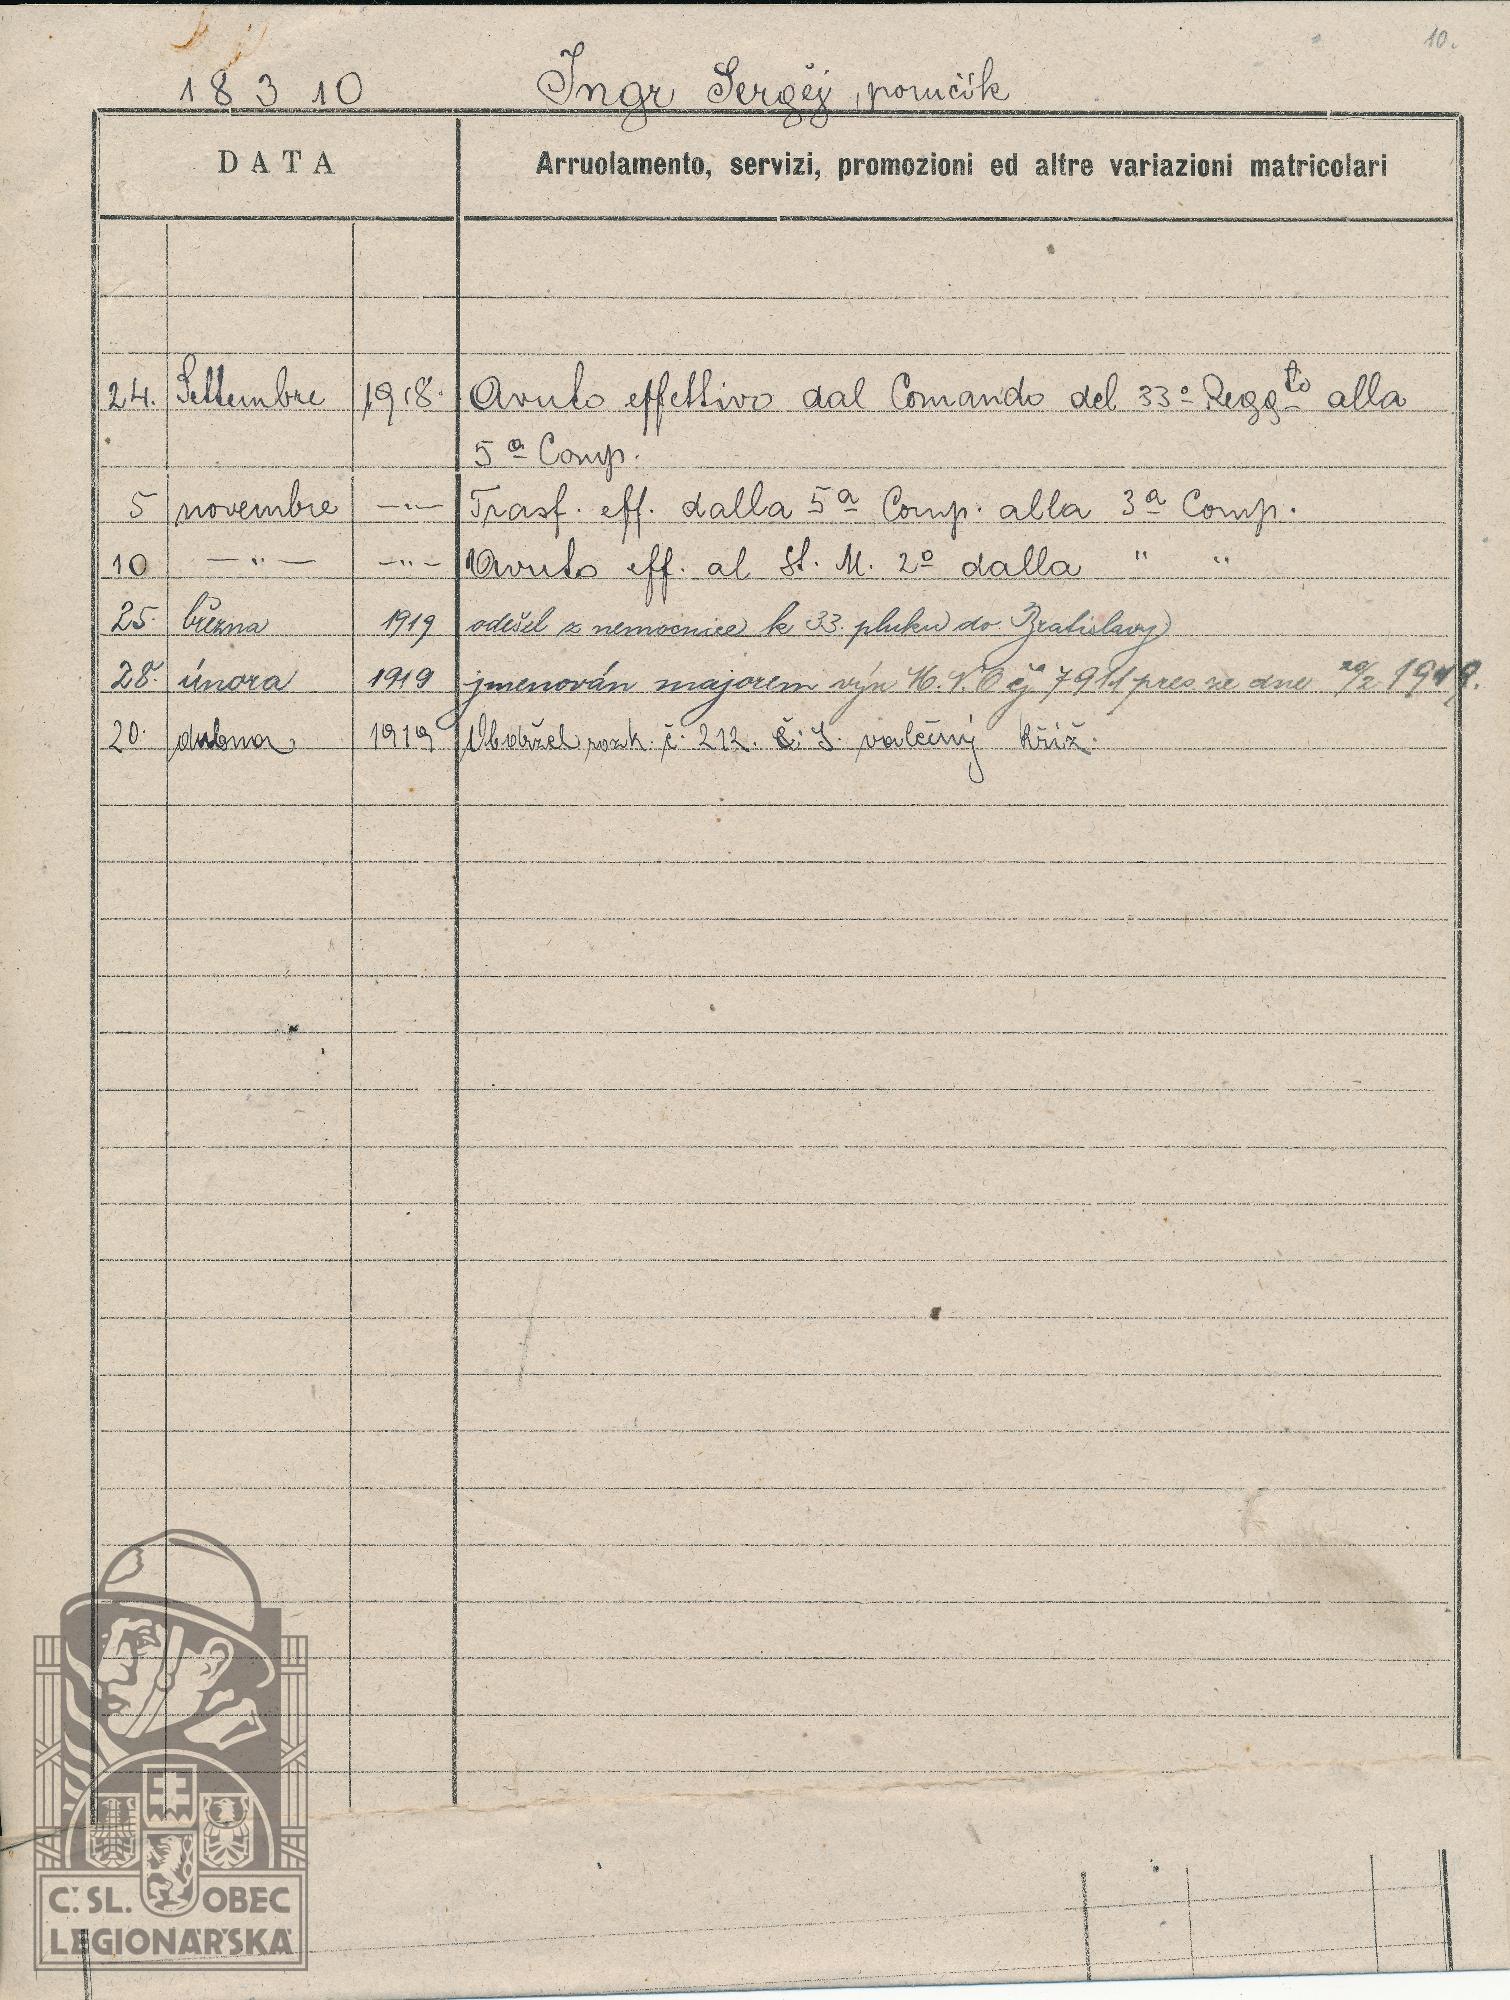 10.
18310 Ingr Sergěj, poručík
DATA Arruolamento, servizi, promozioni ed altre variazioni matricolari
24. Settembre 1918. Avuto effettivo dal Comando del 33º Reggto alla
5ª Comp.
5 novembre —"— Trasf. eff. dalla 5ª Comp. alla 3ª Comp.
10 —"— —"— Avuto eff. al St. M. 2º dalla " "
25. března 1919 odešel z nemocnice k 33. pluku do Bratislavy
28. února 1919 jmenován majorem výn M.N.O čj 7911 pres ze dne 20/2 1919.
20. dubna 1919 Obdržel rozk. č. 212. Č. S. válečný kříž.
Č.SL. OBEC
LEGIONÁŘSKÁ